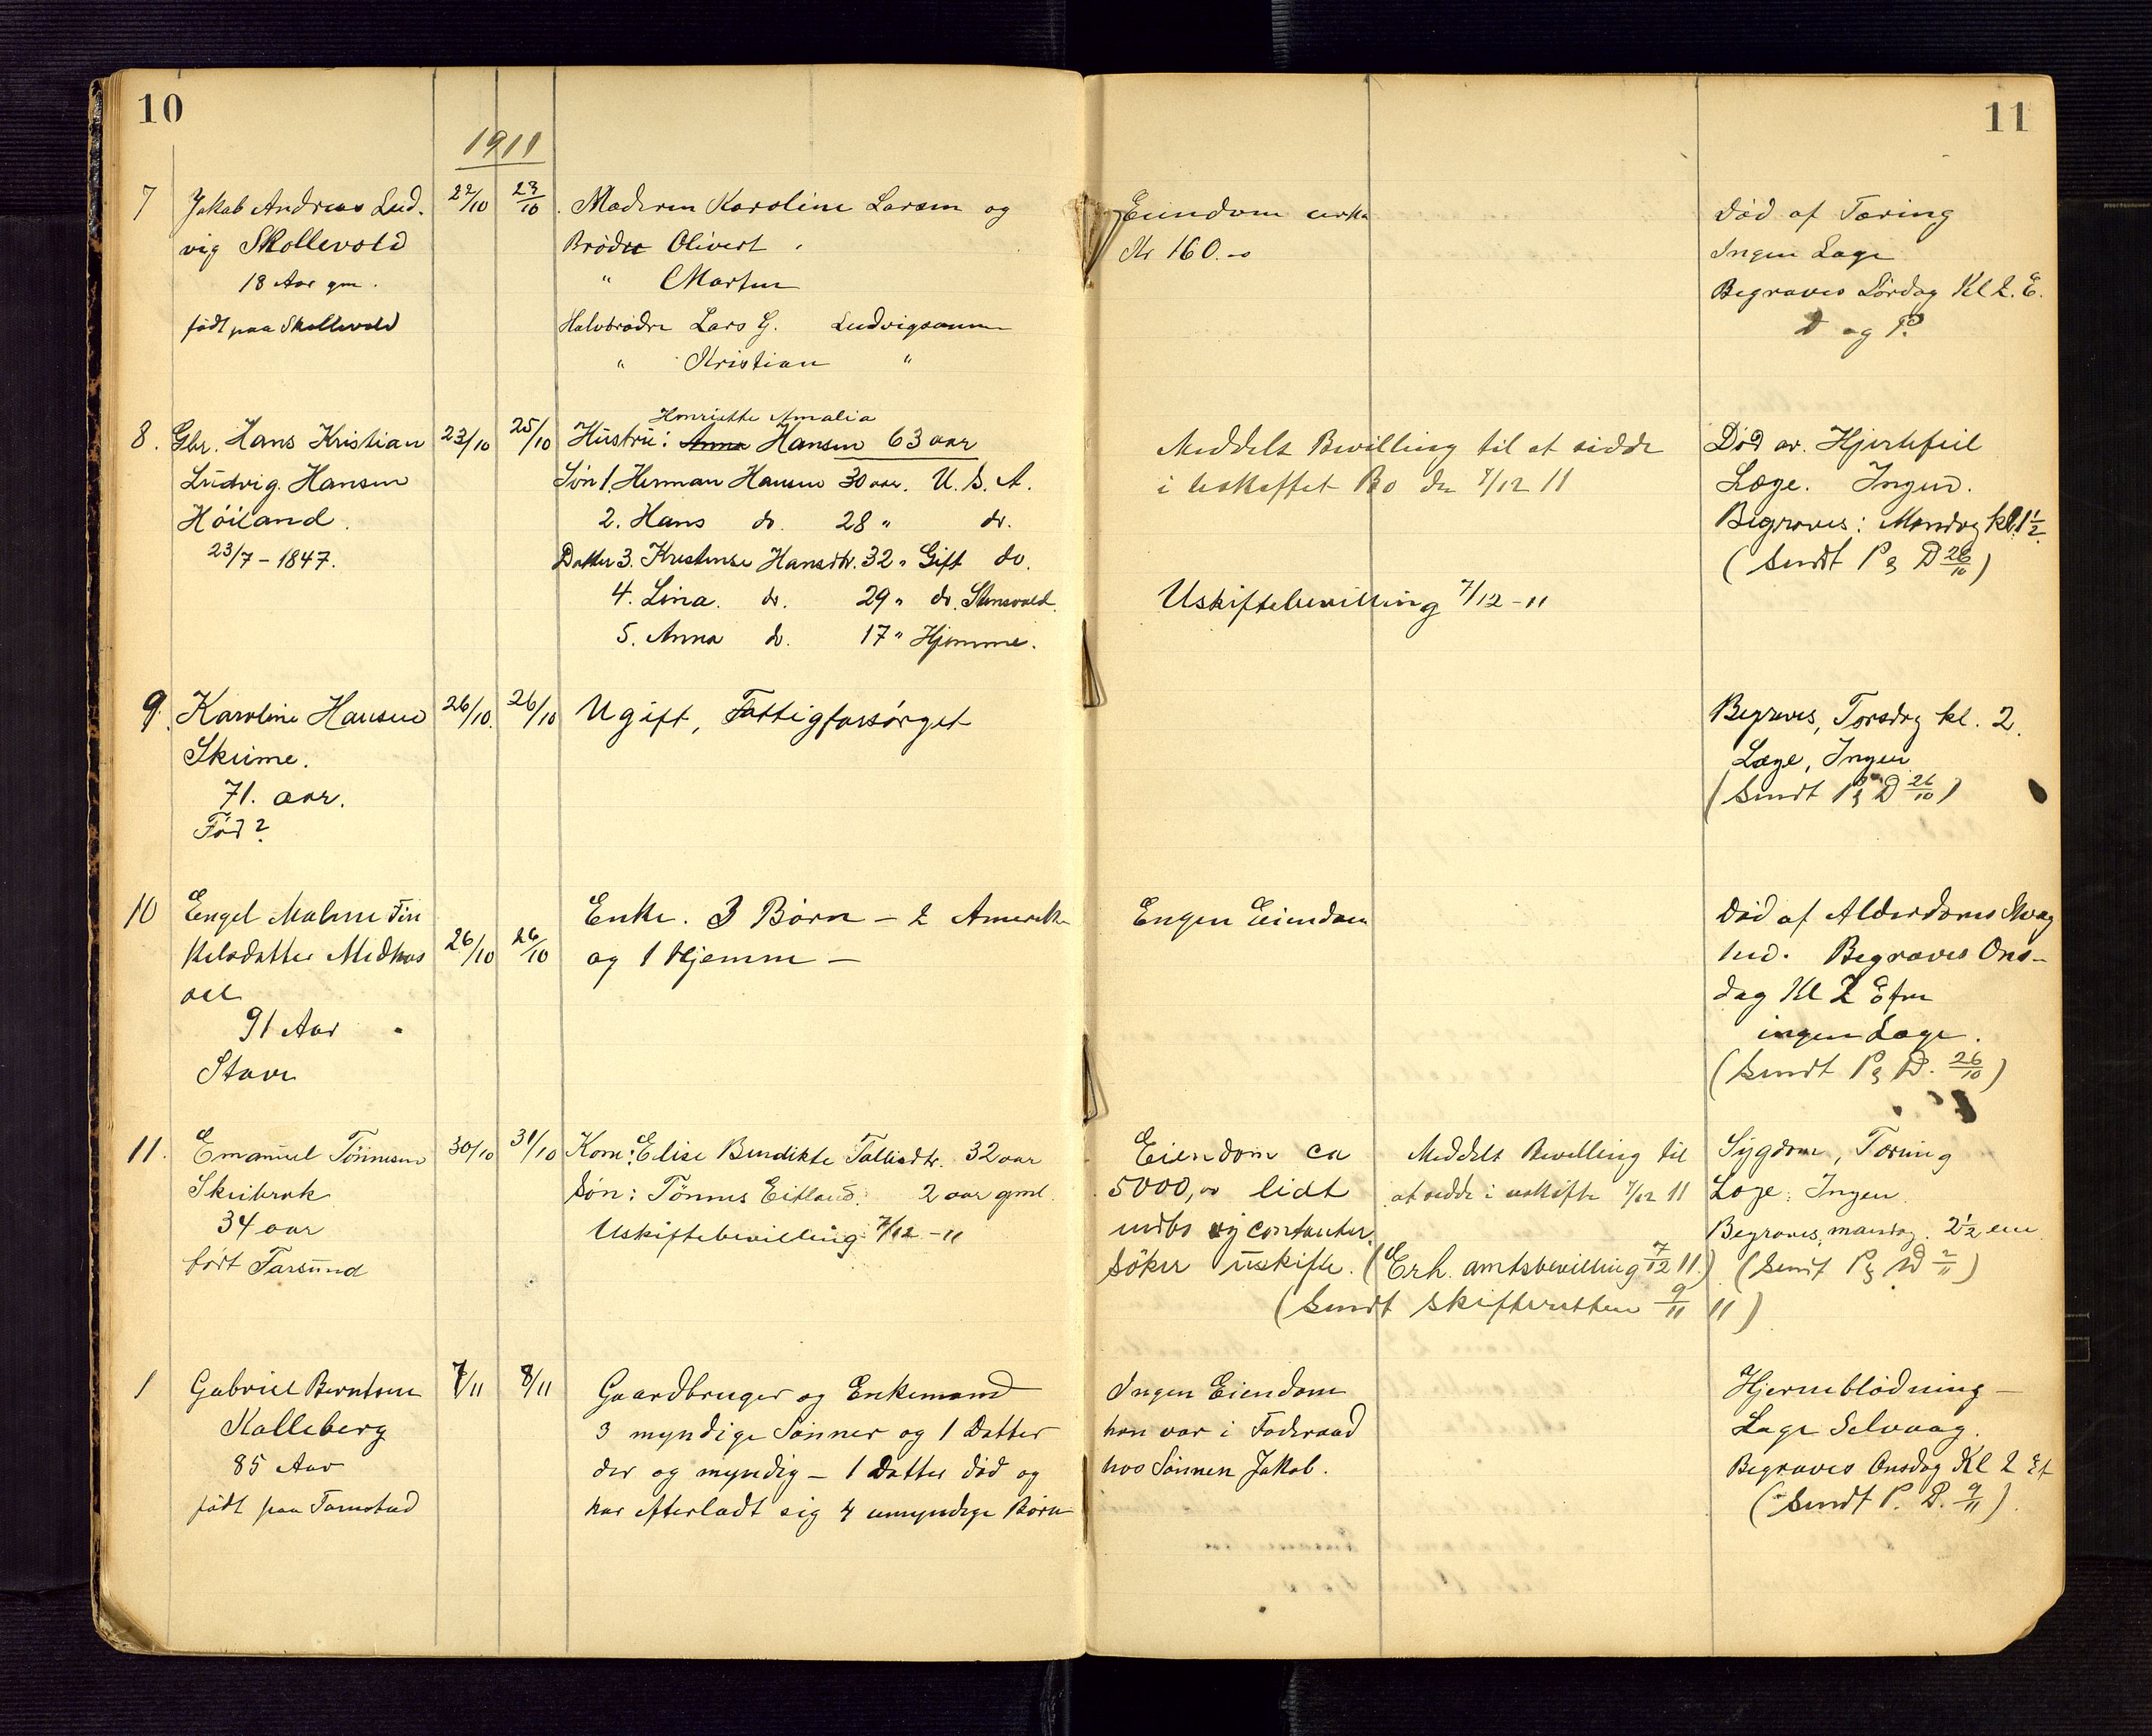 10
1911
7 Jakab Andreas Lud-
vig Skollevold
18 Aar gm.
født paa Skollevold
22/10 23/10
Moderen Karoline Larsen og
Brødre Olivert
" Martin
Halvbrødre Lars G. Ludvigsønn
" Kristian "
8. Gbr. Hans Kristian
Ludvig Hansen
Höiland.
23/7 - 1847.
23/10 25/10
Henriette Amalia
Hustru: Anna Hansen 63 aar
Søn 1. Herman Hansen 30 aar. U. S. A.
2. Hans do. 28 " do.
Datter 3. Kristense Hansdtr. 32 " Gift do.
4. Lina. do. 29 " do.
5. Anna do. 17 " Hjemme.
9. Karoline Hansen
Skeime.
71. aar.
Fød?
26/10. 26/10
Ugift, Fattigforsørget
10 Engel Malene
Medhus
91 Aar
Stave
26/10 26/10
Enke. 3 Børn - 2 Amerika
og 1 Hjemme -
11. Emanuel Tønnesen
Skeibrok
34 aar
født Farsund
30/10 31/10
Kone: Elise Bendikte 32 aar
Søn: Tønnes Eitland. 2 aar gml.
Uskiftebevilling 7/12 - 11
1 Gabriel Berntsen
Kalleberg
85 Aar
født paa
7/11 8/11
Gaardbruger og Enkemand
3 myndige Sønner og 1 Datter
der og myndig - 1 Datter død og
har efterladt sig 4 umyndige Børn
11
Eiendom cirka
Kr 160.-
Død af Tæring
Ingen Læge
Begraves Lørdag Kl 2. E.
D og P.
Meddelt Bevilling til at sidde
i uskiftet Bo den 7/12 11
Uskiftebevilling 7/12 - 11
Død av. Hjertefeil
Læge. Ingen.
Begraves: Mandag kl. 1 1/2
(Sendt P & D 26/10)
Begraves, Torsdag kl. 2.
Læge, Ingen
(Sendt P & D 26/10)
Engen Eiendom
Død af Alderdoms Svag
hed. Begraves Ons-
dag Kl 2 Efm
ingen Læge.
(Sendt P & D. 26/10)
Eiendom ca
5000,00 lidt
indbo og contanter.
Søker uskifte. (Erh. amtsbevilling 7/12 11.)
(Sendt skifteretten 9/11 11)
Meddelt Bevilling til
at sidde i uskifte 7/12 11
Sygdom, Tæring
Læge: Ingen.
Begraves, mandag. 2 1/2 em
(Sendt P & D 2/11)
Ingen Eiendom
han var i Føderaad
hos Sønnen Jakob.
Hjerneblødning -
Læge Selvaag.
Begraves Onsdag Kl 2 Ef
(Sendt P. D. 9/11).